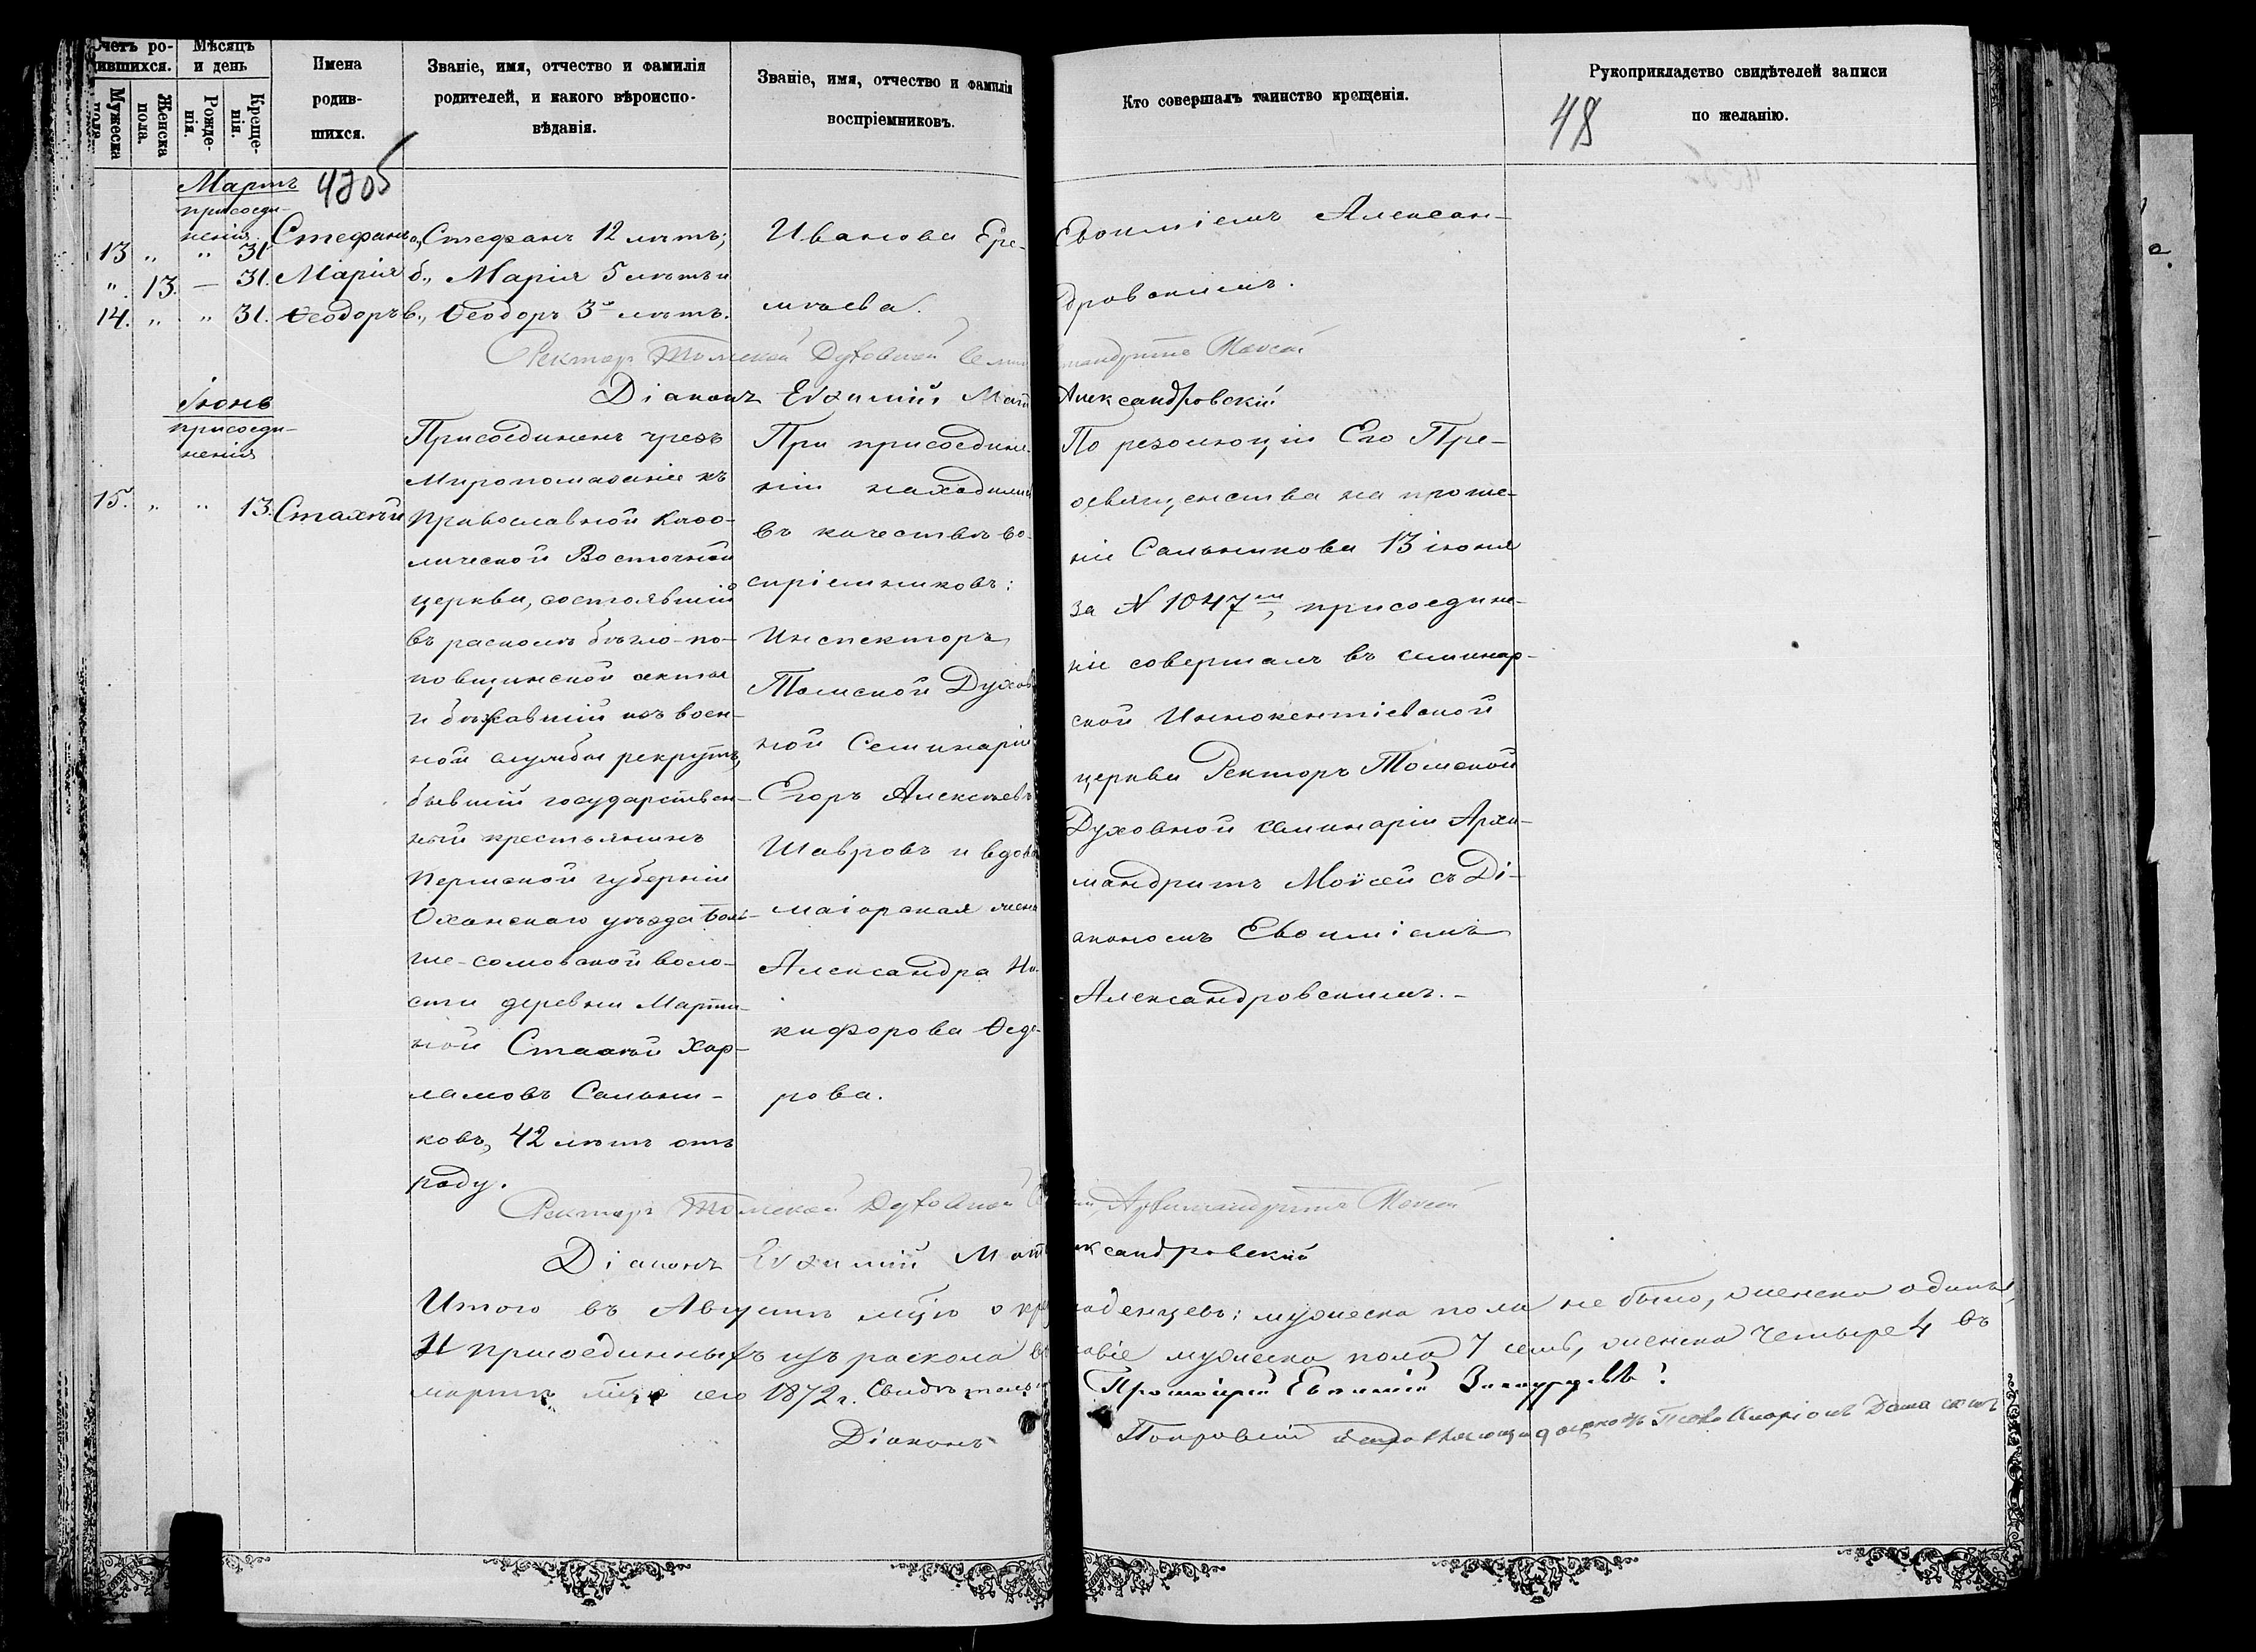 Счетъ ро-
дившихся.
Мужеска
пола.
Женска
пола.
Мѣсяцъ
и день
Рожде-
нія.
Креще-
нія.
Имена
родив-
шихся.
Званіе, имя, отчество и фамилія
родителей, и какого вѣроиспо-
вѣданія.
Званіе, имя, отчество и фамилія
воспріемниковъ.
Кто совершалъ таинство крещенія.
Рукоприкладство свидѣтелей записи
по желанію.
48
4705
Мартъ
присоеди-
ненія
13 „ „ 31 Стефанъ
„ 13. — 31. Марія
14. „ „ 31. Ѳеодоръ
а, Стефанъ 12 лѣтъ;
б., Марія 5 лѣтъ и
в., Ѳеодоръ 3 лѣтъ.
Иванова Ере-
мѣева.
Евѳиміемъ Алексан-
дровскимъ.
Ректоръ Томской Духовной Семи мандритъ Моисей
Діаконъ Евѳимій Александровскій
Іюнь
присоеди-
ненія
15. „ „ 13. Стахій
Присоединенъ чрезъ
Миропомазаніе къ
Православной Каѳо-
лической Восточной
церкви, состоявшій
въ расколѣ бѣгло-по-
повщинской секты
и бѣжавшій изъ воен-
ной службы рекрутъ,
бывшій государствен-
ный крестьянинъ
Пермской губерніи
Оханскаго уѣзда Боль-
ше-сомовской воло-
сти деревни Марти-
ной Стахій Хар-
ламовъ Сальни-
ковъ, 42 лѣтъ отъ
роду.
При присоедине-
ніи находились
въ качествѣ во-
спріемниковъ:
Инспекторъ
Томской Духов-
ной Семинаріи
Егоръ Алексѣевъ
Шавровъ и вдова
маіорская жена
Александра Ни-
кифорова Ѳедо-
рова.
По резолюціи Его Пре-
освященства на проше-
ніи Сальникова 13 іюня
за N 1047, присоедине-
ніе совершалъ въ семинар-
ской Иннокентіевской
церкви Ректоръ Томской
Духовной семинаріи Архи-
мандритъ Моѵсей съ Ді-
акономъ Евѳиміемъ
Александровскимъ.
Ректоръ Томской Духовной Архимандритъ Моисей
Діаконъ Евѳимій ксандровскій
Итого въ Августѣ мцѣ о кр аденцевъ: мужеска пола не было, женска одинъ,
И присоединенныхъ изъ раскола мужеска пола 7 семь, женска четыре 4 въ
мартѣ сего 1872 г. Протоіерей Евѳимій
Діаконъ